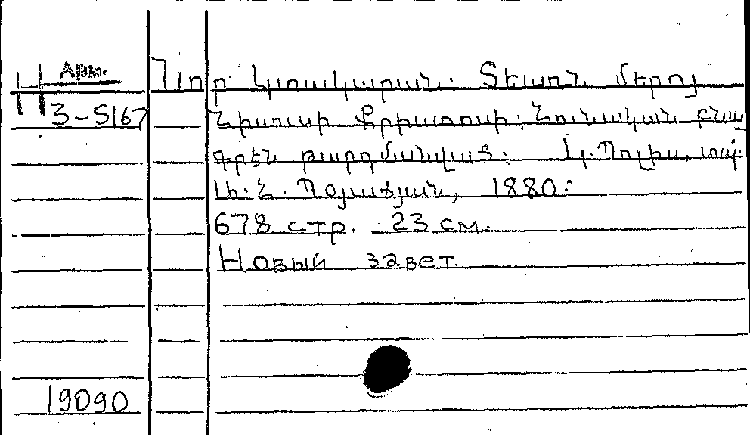 Арм. Նոր Կտակարան. Տեառն մերոյ
Н 3-5167 Յիսուսի Քրիստոսի. Յունական բնա
գրէն թարգմանված: Կ. Պոլիս, տպ.
1880:
678 стр. 23 см.
Новый завет.
19090